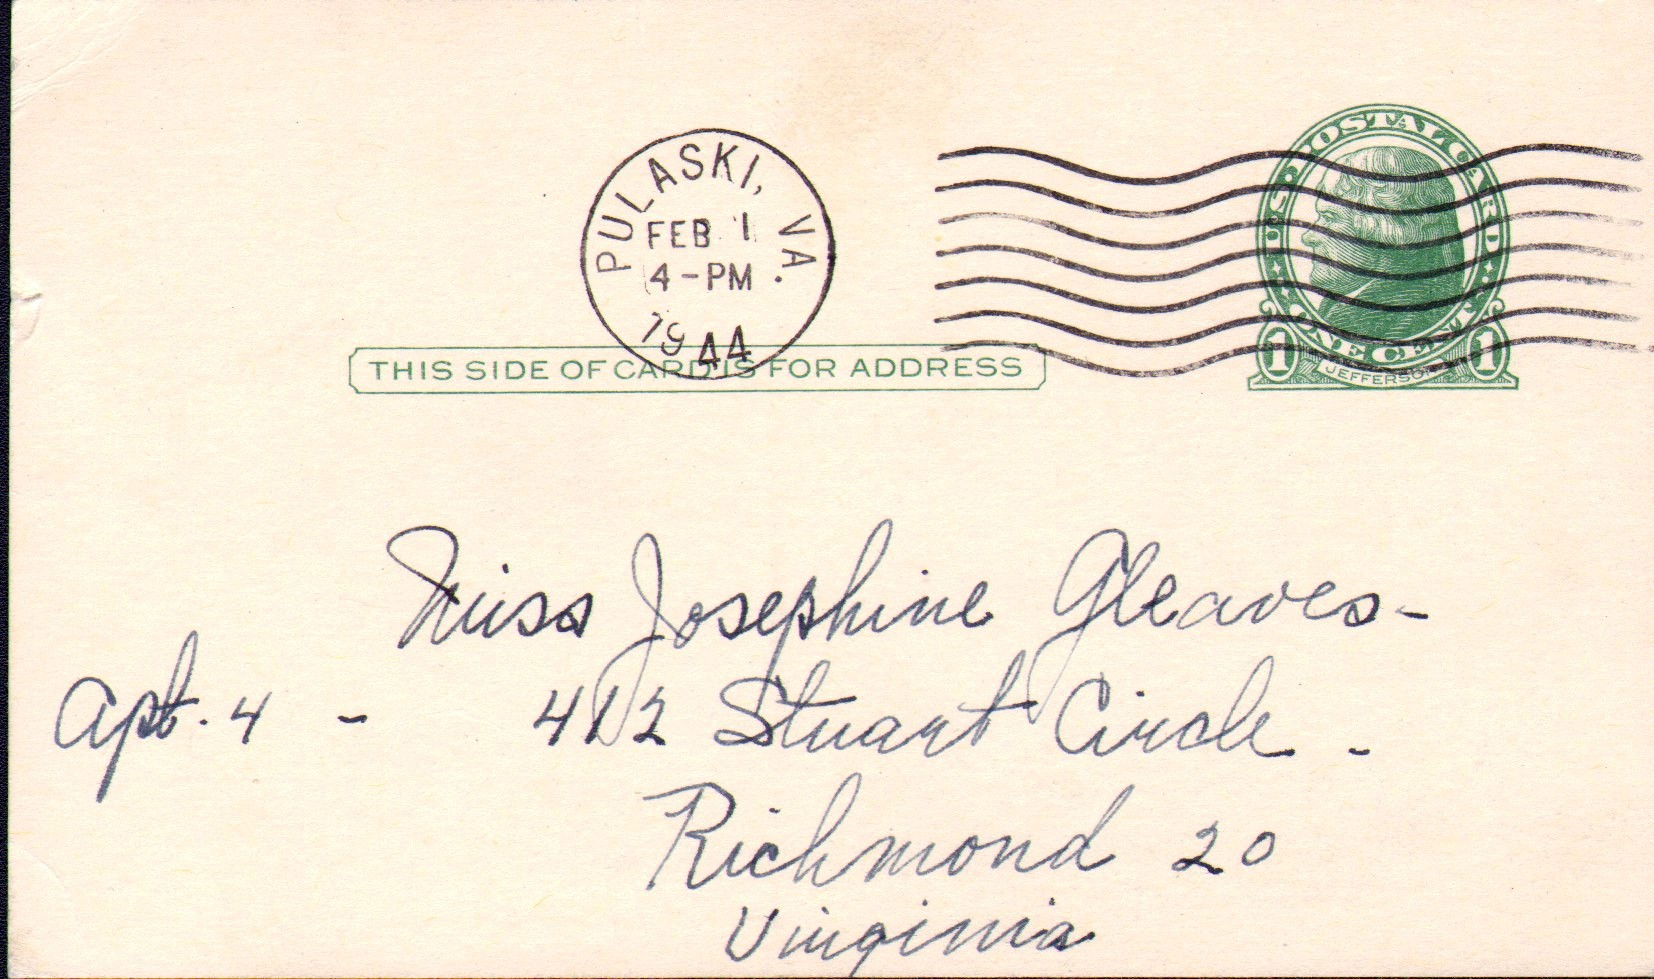 U.S. POSTAL CARD
PULASKI, VA.
FEB 1
4-PM
1944
ONE CENT
1 JEFFERSON 1
THIS SIDE OF CARD IS FOR ADDRESS
Miss Josephine Gleaves-
Apt. 4 - 412 Stuart Circle -
Richmond 20
Virginia